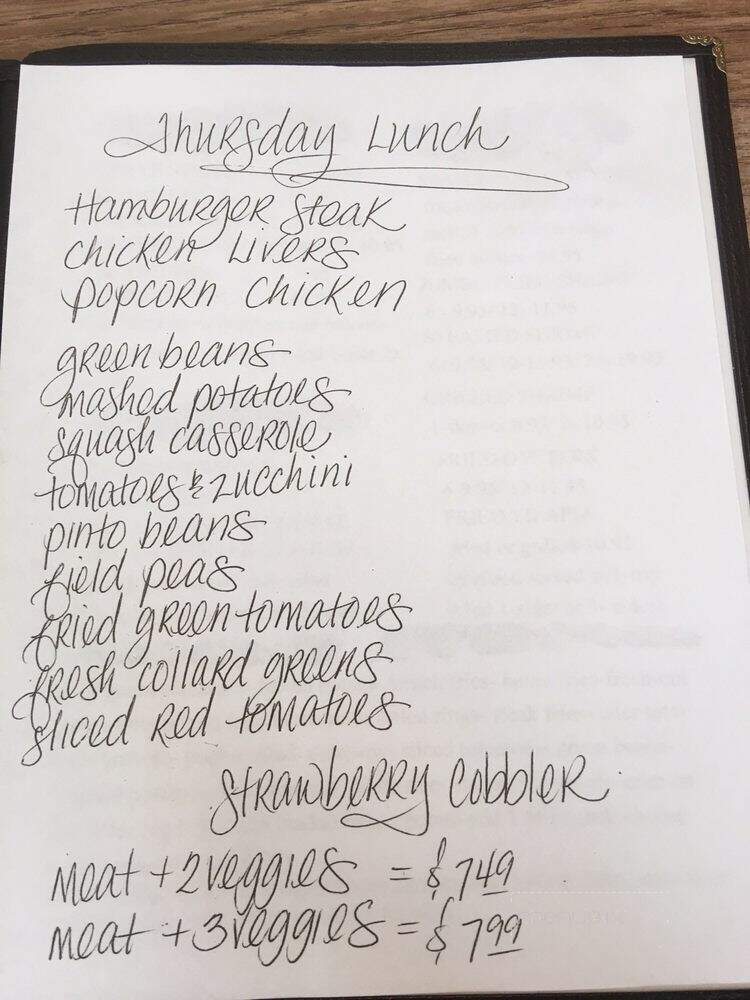 Thursday Lunch
Hamburger Steak
Chicken Livers
Popcorn Chicken
green beans
mashed potatoes
squash casserole
tomatoes & zucchini
pinto beans
field peas
fried green tomatoes
fresh collard greens
sliced red tomatoes
Strawberry Cobbler
meat + 2 veggies = $7.49
meat + 3 veggies = $7.99